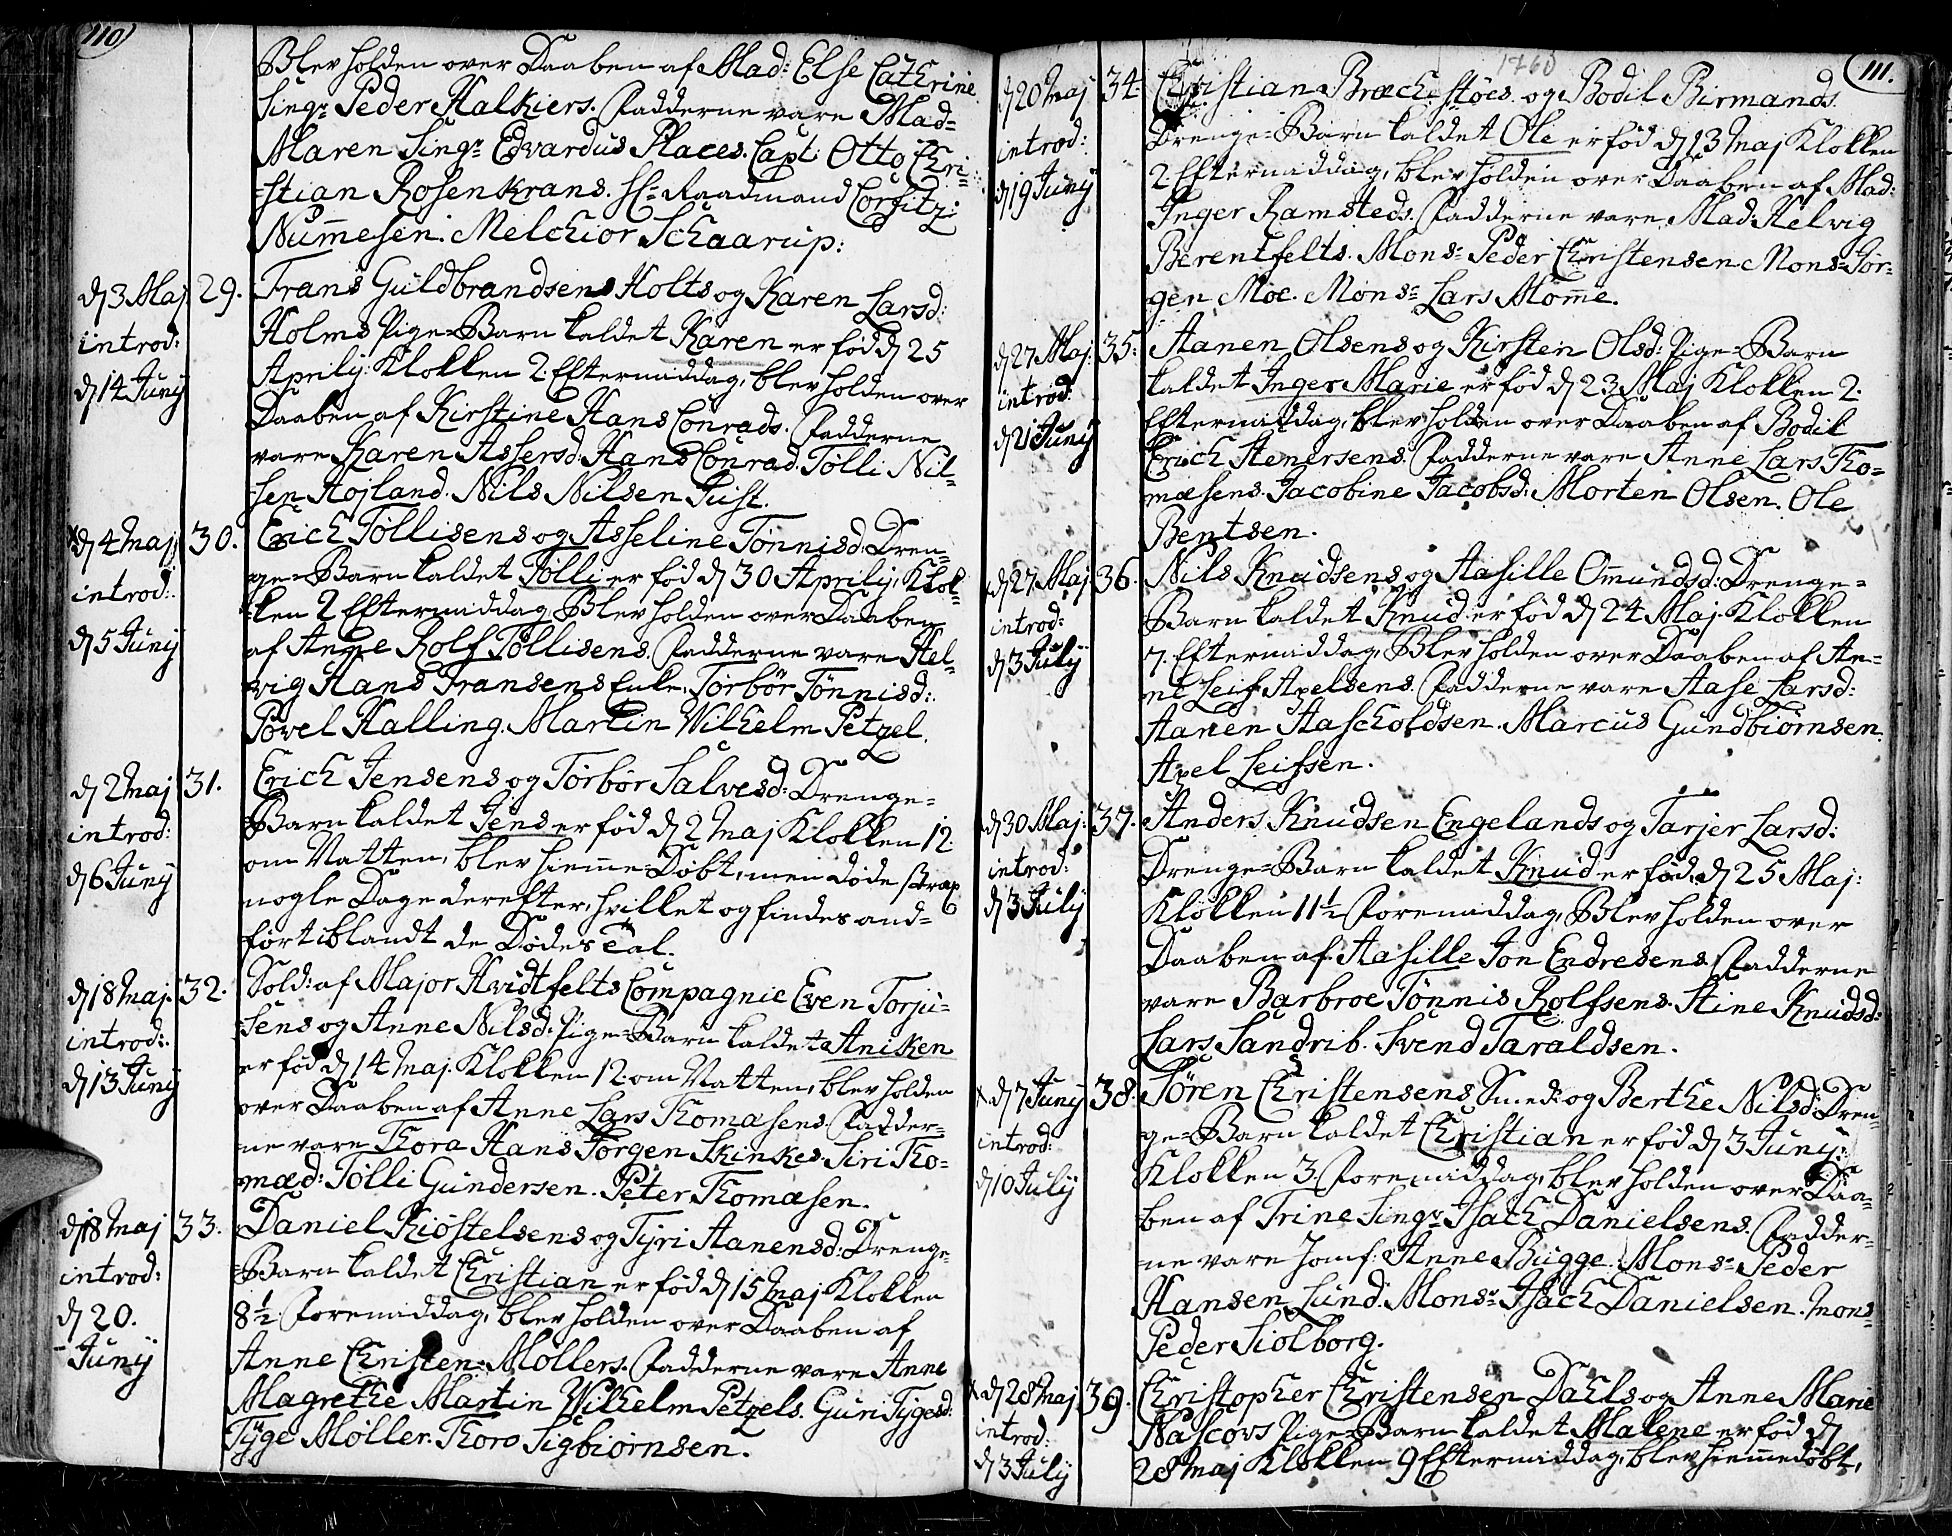 110
Blev holden over Daaben af Mad: Else Cathrine
Sing.r Peder Kalkiers. Fadderne vare Mad=
Maren Sing.r Edvardus Places. Capt: Otto Chri=
=stian Rosenkrans. Raadmand Corfitz
Num̄esen. Melchior Schaarup:
d 3 Maj
introd:
d 14 Junij
29. Frans Guldbrandsens Holts og Karen Larsd:
Holms Pige=Barn kaldet Karen er fød d 25
Aprilij Klokken 2 Eftermiddag, blev holden over
Daaben af Kirstine Hans Conrads. Fadderne
vare Karen Assersd: Hans Conrad. Tølli Nil=
sen Højland. Nils Nilsen Tuist.
d 4 Maj
introd:
d 5 Junij
30. Erich Tøllisens og Asseline Tønnisd: Dren=
ge=Barn kaldet Tølli er fød d 30 Aprilij, Klok=
=ken 2 Eftermiddag, Blev holden over Daaben
af Anne Rolf Tøllisens. Fadderne vare Hel=
vig Hans Fransens Enke. Torbør Tønnisd:
Povel Kalling. Martin Wilhelm Petzel.
d 2 Maj
introd:
d 6 Junij
31. Erich Jensens og Torbør Salvesd: Drenge=
Barn kaldet Jens er fød d 2 Maj Klokken 12
om Natten, blev hiem̄e Døbt, men døde strax
nogle Dage derefter, hvilket og findes and=
ført iblandt de Dødes Tal.
d 18 Maj
introd:
d 13 Junij
32. Sold: af Major Hvidtfelts Compagnie Even Torju=
sens og Anne Nilsd: Pige=Barn kaldet Aniken
er fød d 14 Maj. Klokken 12 om Natten, blev holden
over Daaben af Anne Lars Thomasens. Fadder=
=ne vare Thora Hans Jørgen Skinkes. Siri Tho=
mæd: Tølli Gundersen. Peter Thomasen.
d 18 Maj
introd:
d 20.
Junij
33. Daniel Kiøstelsens og Tyri Aanensd: Drenge=
=Barn kaldet Christian er fød d 15 Maj Klokken
8½ Foremiddag, blev holden over Daaben af
Anne Christen Møllers. Fadderne vare Anne
Magrethe Martin Wilhelm Petzels. Guri Tygesd:
Tyge Møller. Thoro Sigbiørnsen.
1760
111.
d 20 Maj
introd:
d 19 Junij
34. Christian Bræchstøes og Bodil Birmands
Drenge=Barn kaldet Ole er fød d 13 Maj Klokken
2 Eftermiddag, blev holden over Daaben af Mad:
Inger Ramsteds. Fadderne vare Mad: Helvig
Berentfelts. Mons= Peder Christensen. Mons= Jør=
gen Moe. Mons= Lars Mom̄e.
d 27 Maj
introd:
d 21 Junij
35. Aanen Olsens og Kirsten Olsd: Pige=Barn
kaldet Inger Marie er fød d 23 Maj Klokken 2
Eftermiddag, blev holden over Daaben af Bodil
Erich Aenersens. Fadderne vare Anne Lars Tho=
mæsens. Jacobine Jacobsd: Morten Olsen. Ole
Bentsen.
d 27 Maj
introd:
d 3 Julij
36. Nils Knudsens og Aasille Om̄undsd: Drenge=
Barn kaldet Knud er fød d 24 Maj Klokken
7. Eftermiddag, Blev holden over Daaben af An=
ne Leif Axelsens. Fadderne vare Aase Larsd:
Aanen Aascholdsen. Marcus Gundbiørnsen.
Axel Leifsen.
d 30 Maj:
introd:
d 3 Julij
37. Anders Knudsen Engelands og Tarjer Larsd:
Drenge=Barn kaldet Knud er fød d 25 Maj:
Klokken 11½ Foremiddag, Blev holden over
Daaben af Aasille Jon Endresens. Fadderne
vare Barbroe Tønnis Rolfsens. Stine Knudsd:
Lars Sandrib. Svend Taraldsen.
d 7 Junij
introd:
d 10 Julij
38. Søren Christensens Smed: og Berthe Nilsd: Dren=
ge=Barn kaldet Christian er fød d 3 Junij:
Klokken 3. Foremiddag, blev holden over Daa=
ben af Trine Sing.r Isach Danielsens. Fadder=
ne vare Jomf: Anne Bugge. Mons= Peder
Hansen Lund. Mons.r Isach Danielsen. Mons=
Peder Siolborg.
d 28 Maj
introd:
d 3 Julij
39. Christopher Christensen Dahls og Anne Marie
Nascovs Pige=Barn kaldet Malene er fød d
28 Maj Klokken 9 Eftermiddag, blev hiem̄edøbt,